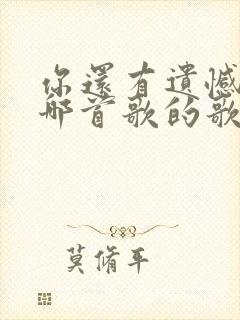 你還有遺憾
那首歌的歌
莫脩平